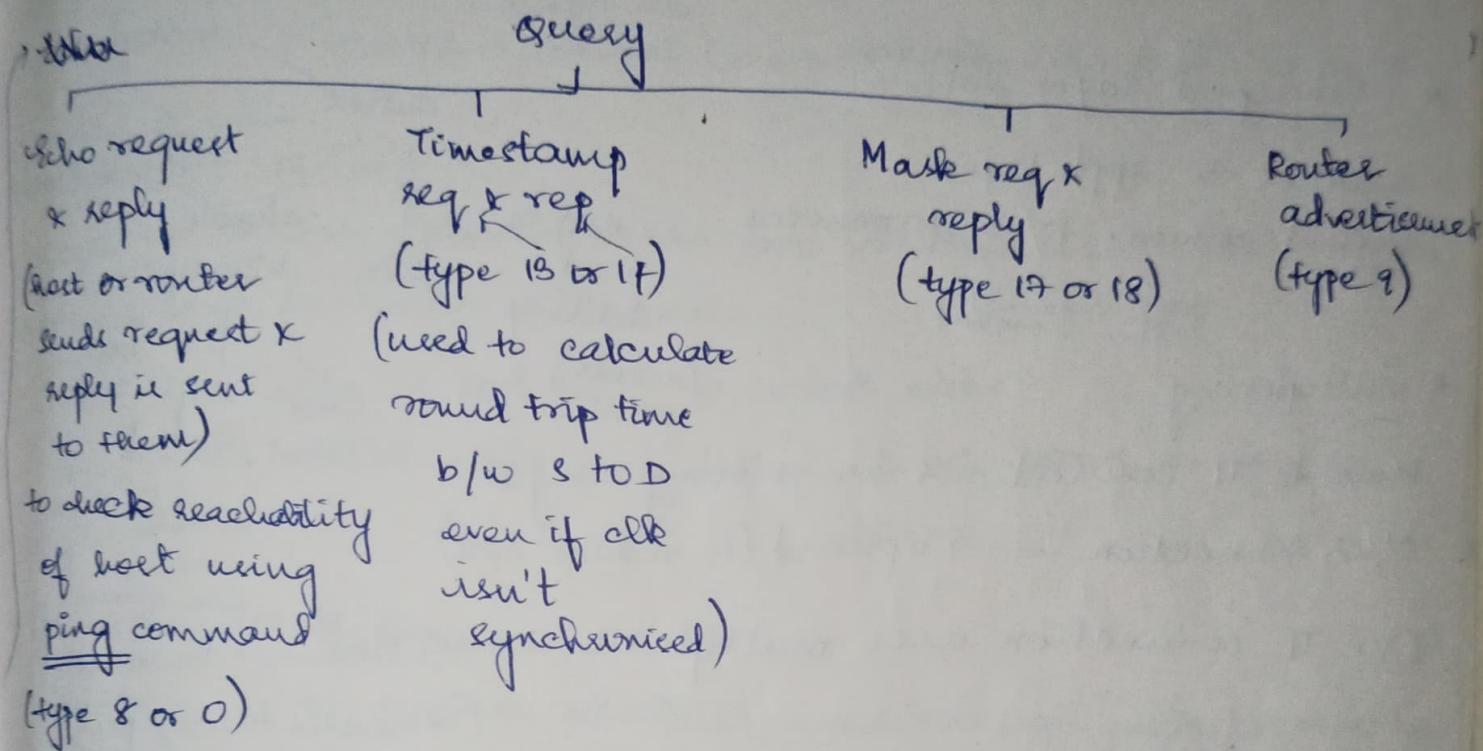 Query
Echo request
& reply
(host or router
sends request &
reply is sent
to them)
to check reachability
of host using
ping command
(type 8 or 0)
Timestamp
req & rep
(type 13 or 14)
(used to calculate
round trip time
b/w S to D
even if clk
isn't
synchronised)
Mask req &
reply
(type 17 or 18)
Router
advertisemen
(type 9)